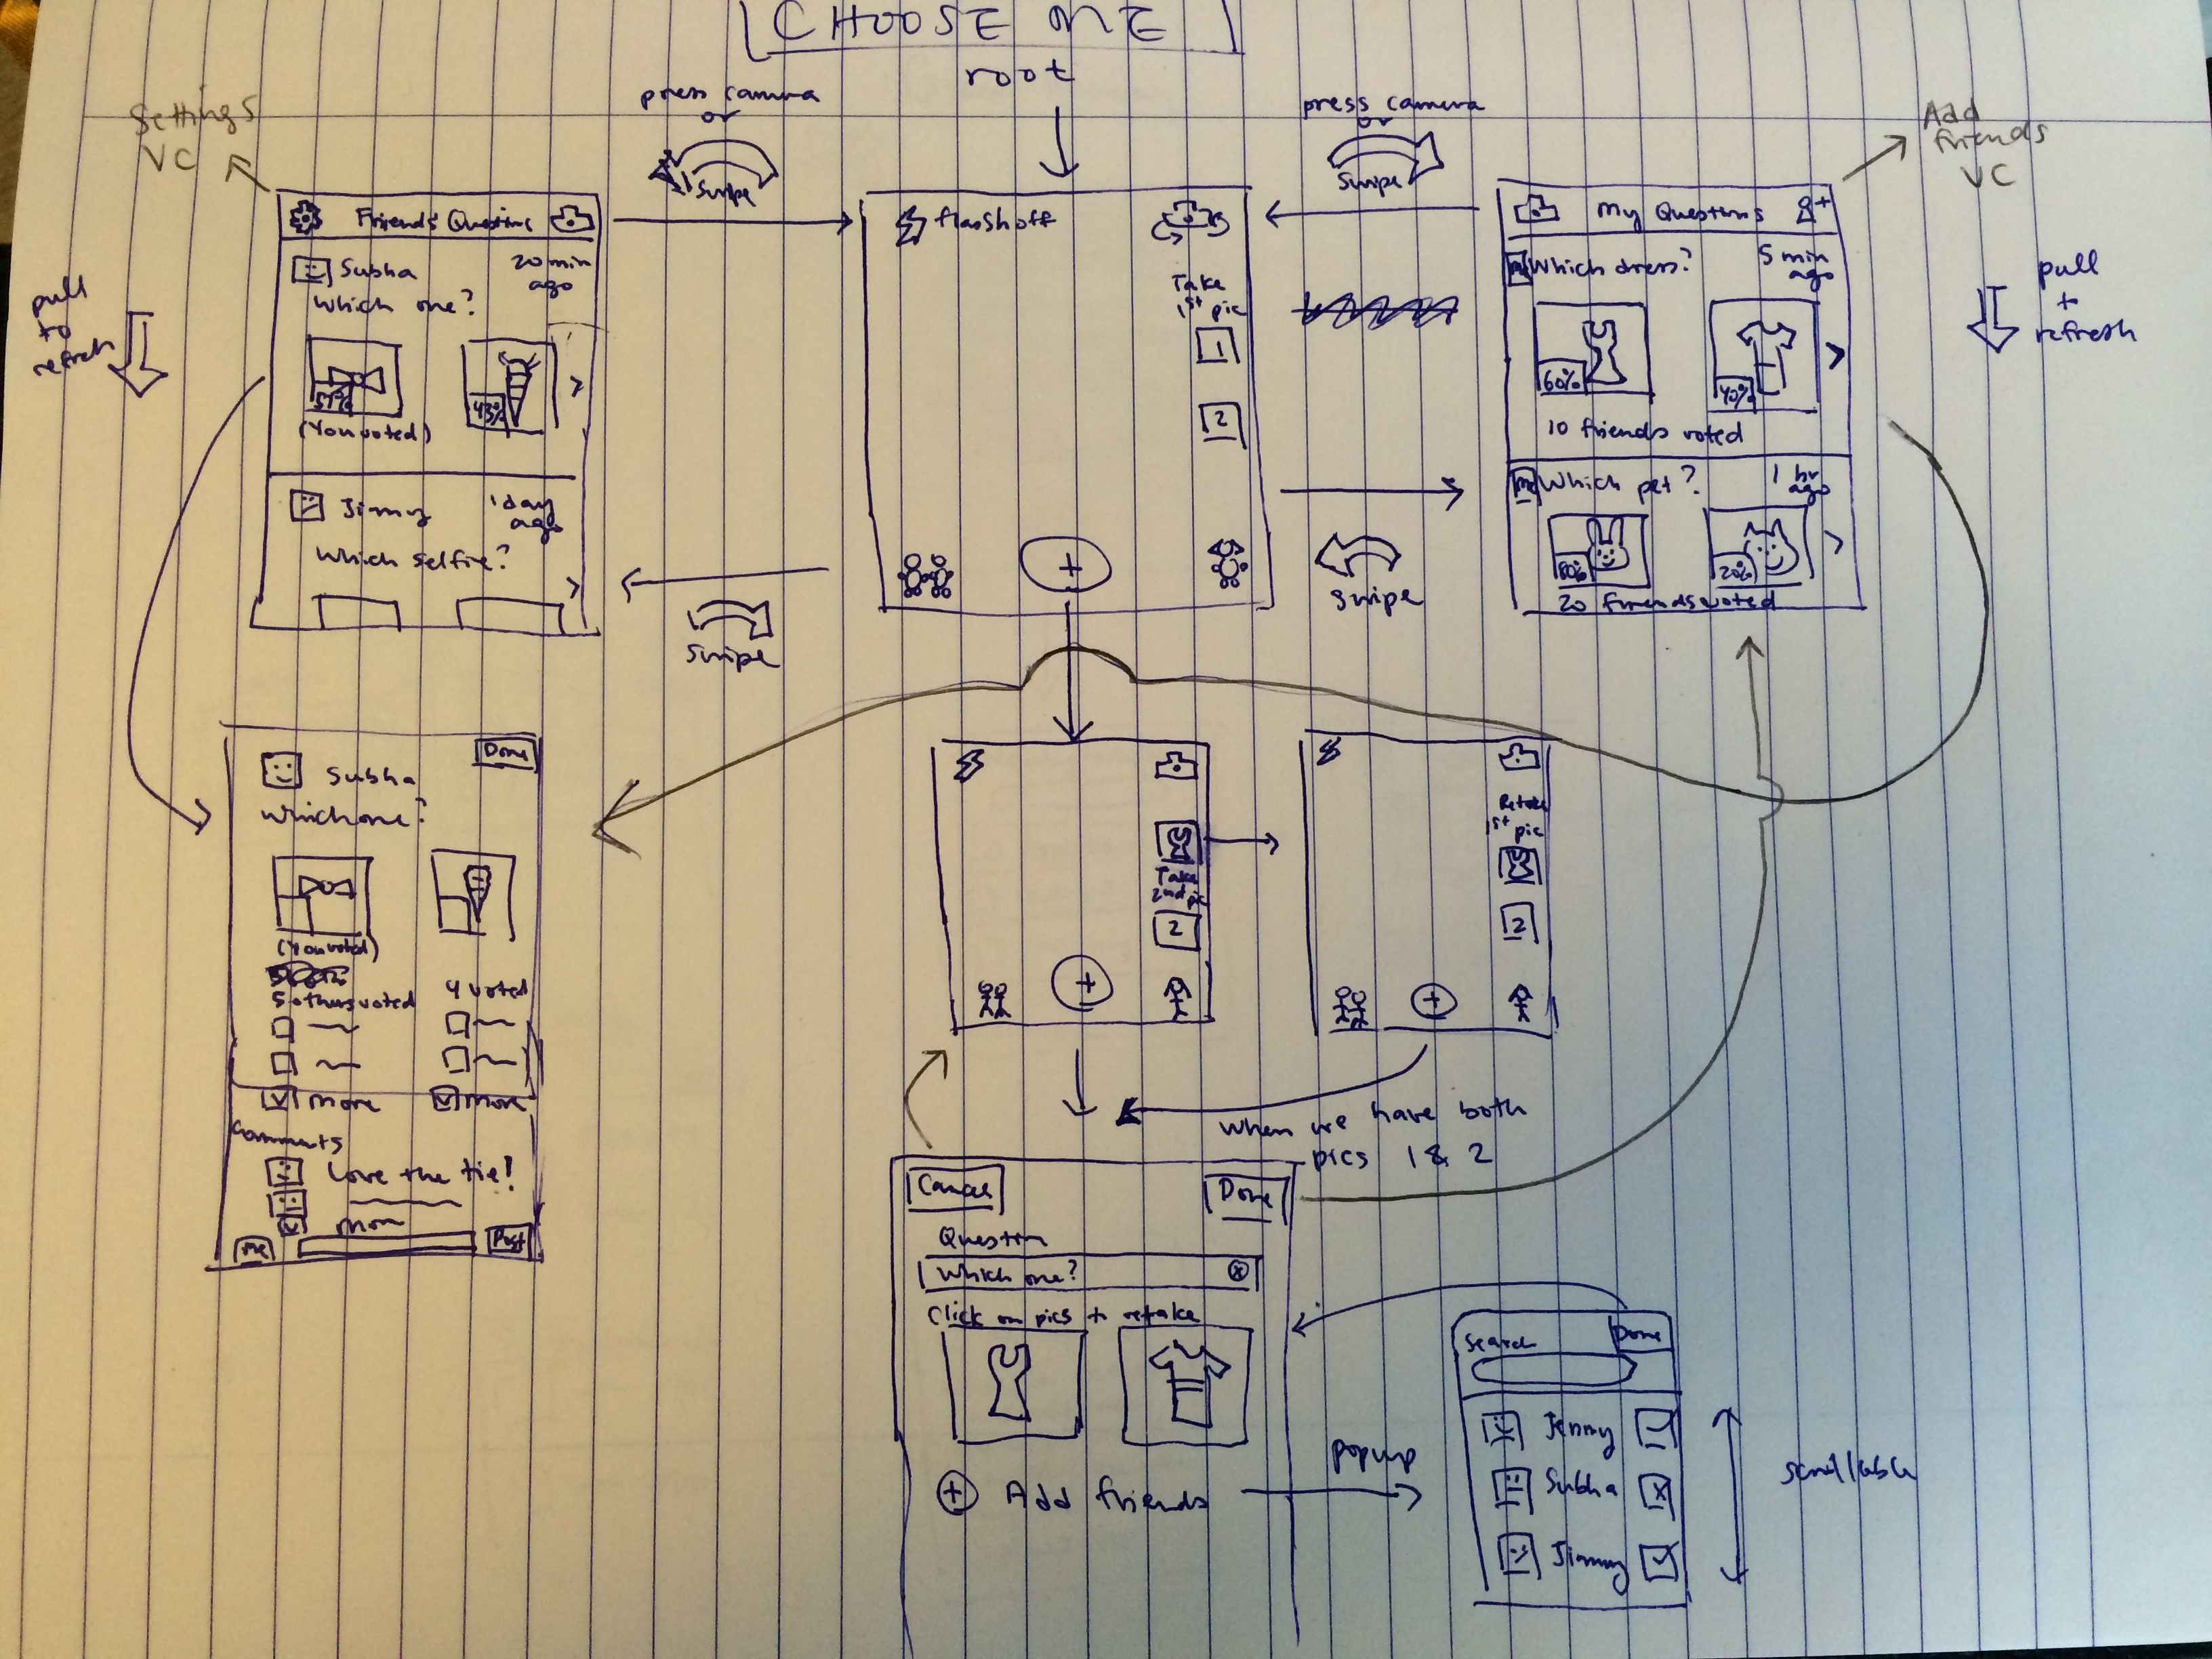 CHOOSE ME
root
Settings
VC
press camera
or
Swipe
press camera
or
Swipe
Add
friends
VC
Friends' Questions
Subha
20 min
ago
Which one?
57%
43%
(You voted)
Jimmy
1 day
ago
Which selfie?
pull
to
refresh
flash off
Take
1st pic
1
2
+
Swipe
Swipe
My Questions
me
Which dress?
5 min
ago
60%
40%
10 friends voted
me
Which pet?
1 hr
ago
80%
20%
20 friends voted
pull
to
refresh
Done
Subha
Which one?
(You voted)
5 others voted
4 voted
more
more
Comments
Love the tie!
more
me
Post
Take
2nd pic
2
+
Retake
1st pic
2
+
when we have both
pics 1 & 2
Cancel
Done
Question
Which one?
Click on pics to retake
+ Add friends
popup
Search
Done
Jenny
Subha
Jimmy
scrollable